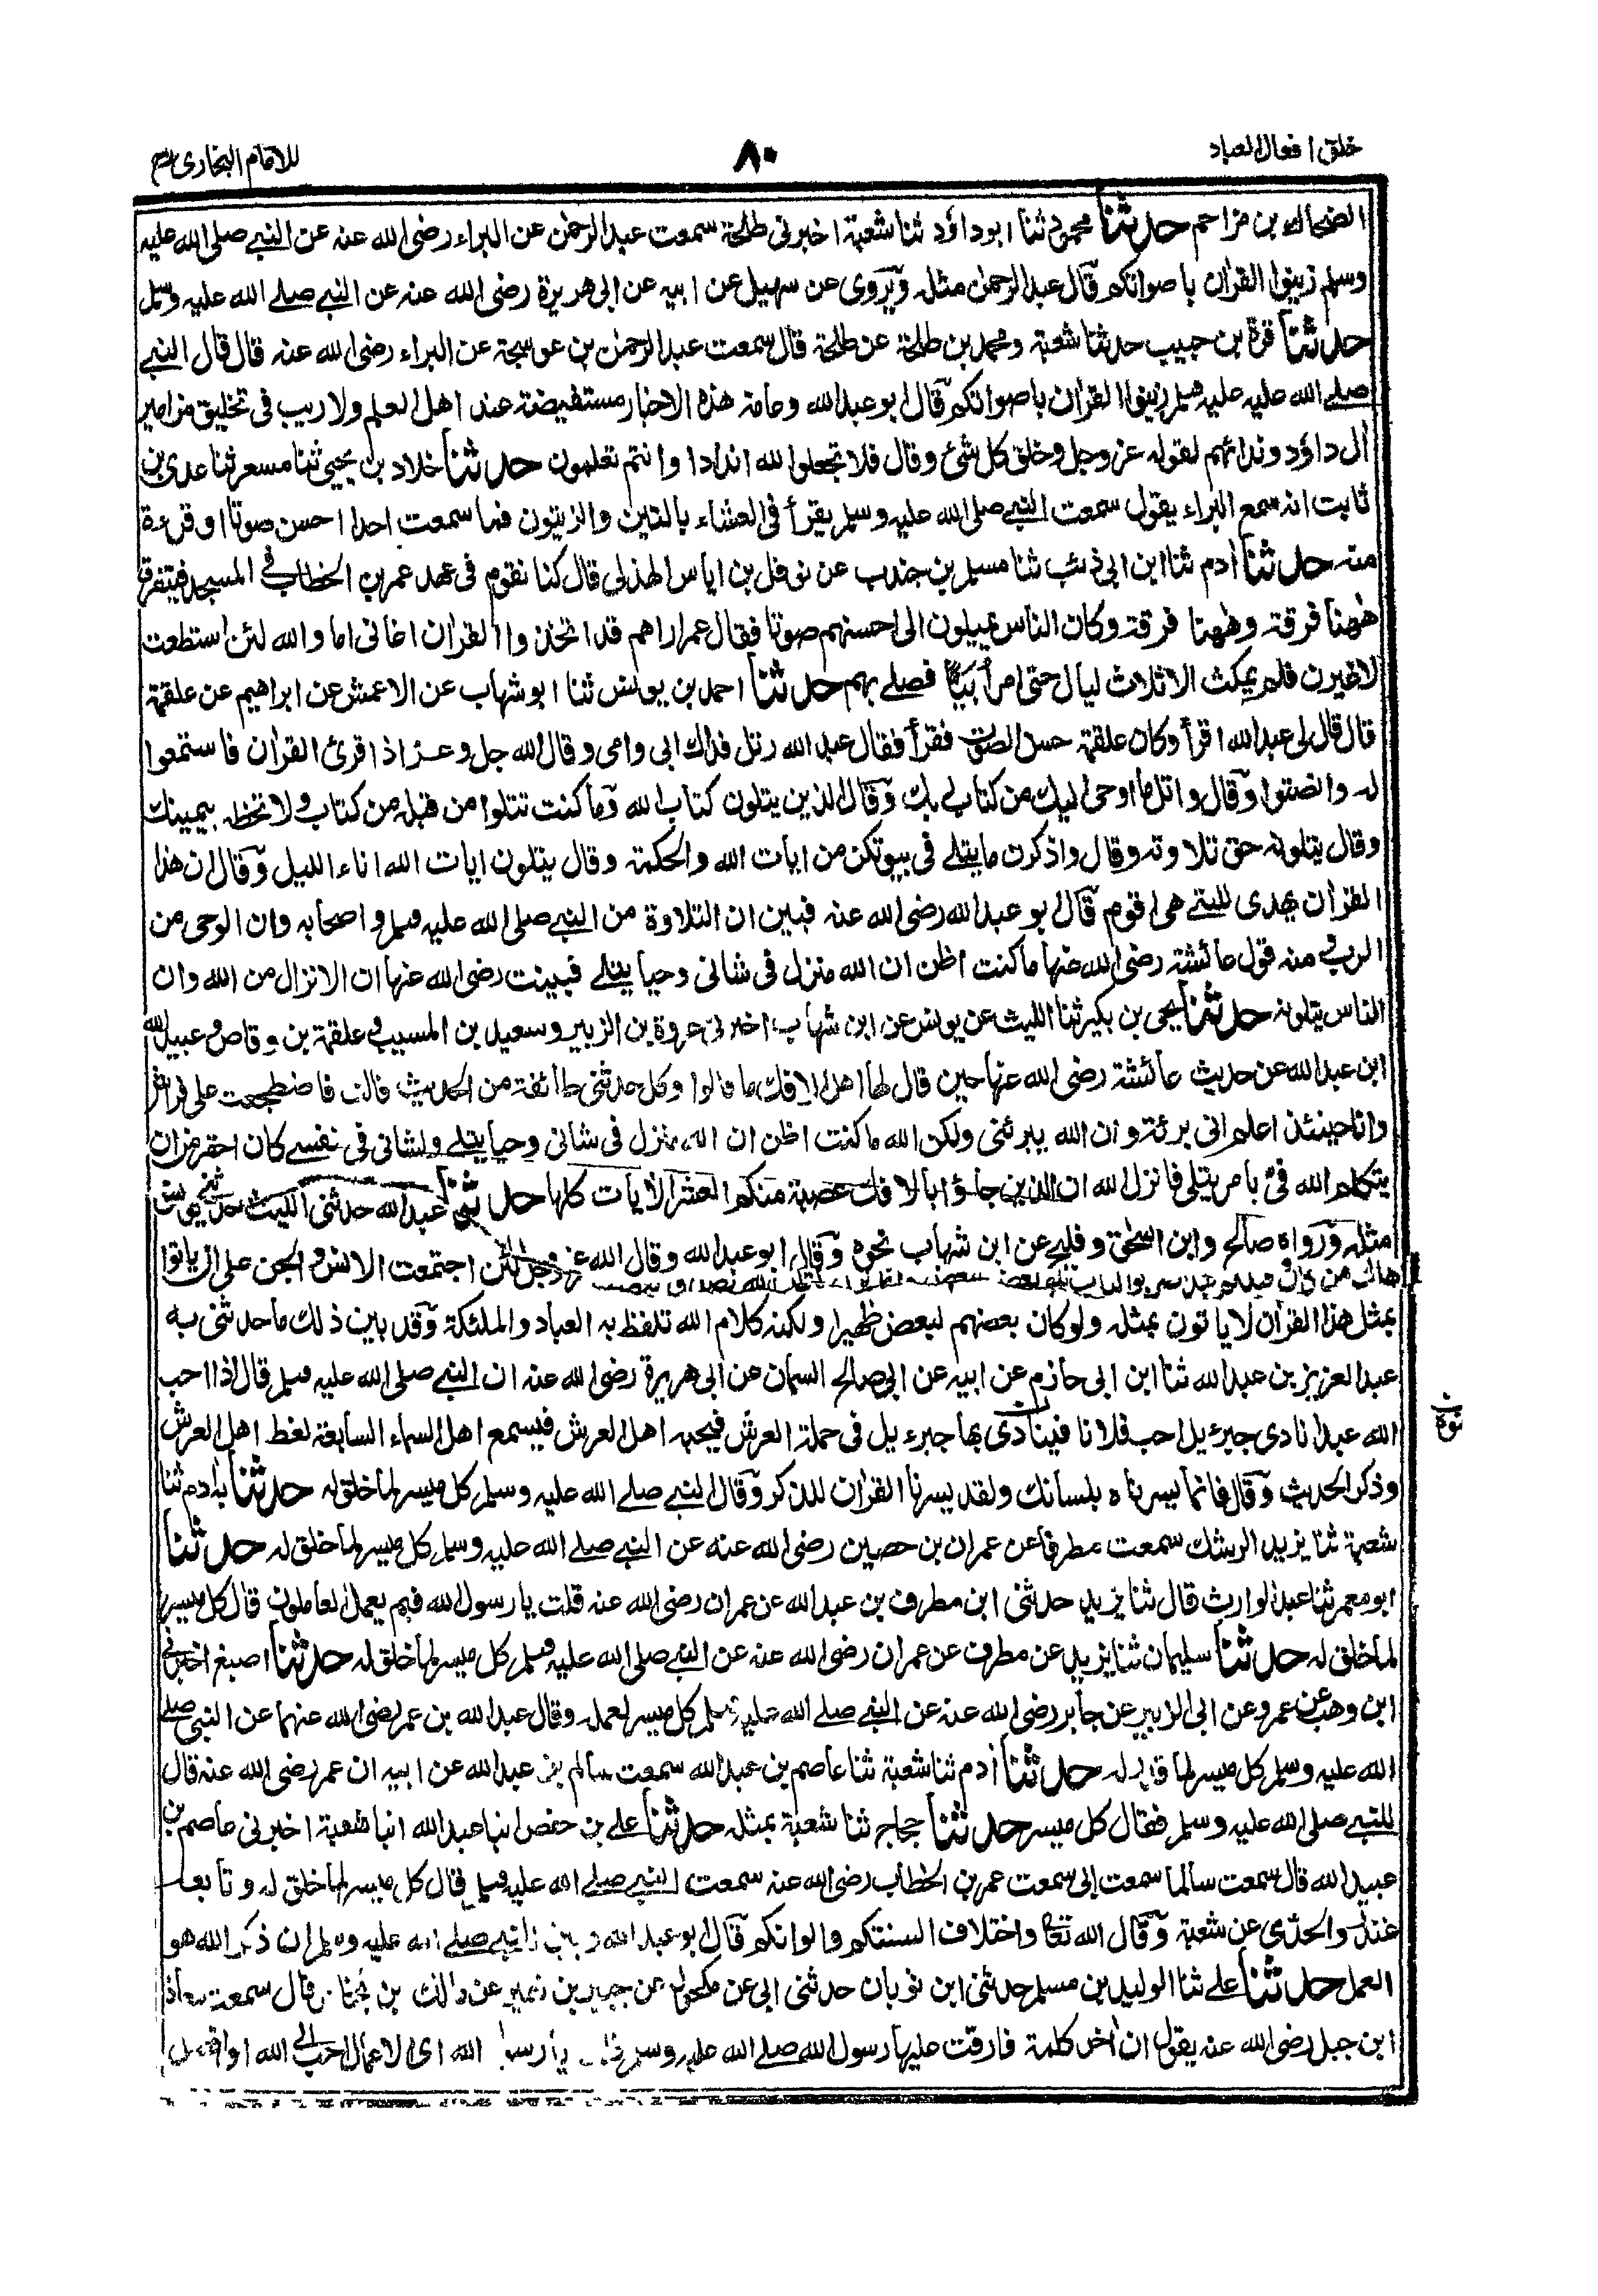 خلق افعال العباد
٨٠
للامام البخارى رح
الضحاك بن مزاحم حدثنا محمود ثنا ابوداؤد ثنا شعبة اخبرنى طلحة سمعت عبدالرحمٰن عن البراء رضى الله عنه عن النبى صلى الله عليه
وسلم زينوا القراٰن باصواتكم وقال عبدالرحمٰن مثله ويروى عن سهيل عن ابيه عن ابى هريرة رضى الله عنه عن النبى صلى الله عليه وسلم
حدثنا قرة بن حبيب حدثنا شعبة ومحمد بن طلحة عن طلحة قال سمعت عبدالرحمٰن بن عوسجة عن البراء رضى الله عنه قال قال النبى
صلى الله عليه عليه وسلم زينوا القراٰن باصواتكم وقال ابوعبدالله وعامة هذه الاخبار مستفيضة عند اهل العلم ولا ريب فى تخليق مزامير
اٰل داؤد وندائهم لقوله عزوجل وخلق كل شئ وقال فلا تجعلوا لله اندادا وانتم تعلمون حدثنا خلاد بن يحيى ثنا مسعر ثنا عدى بن
ثابت انه سمع البراء يقول سمعت النبى صلى الله عليه وسلم يقرأ فى العشاء بالتين والزيتون فما سمعت احدا احسن صوتا او قرءة
منه حدثنا اٰدم ثنا ابن ابى ذئب ثنا مسلم بن جندب عن نوفل بن اياس الهذلى قال كنا نقوم فى عهد عمر بن الخطاب فى المسجد فيتفرق
هٰهنا فرقة وهٰهنا فرقة وكان الناس يميلون الى احسنهم صوتا فقال عمر اراهم قد اتخذوا القراٰن اغانى اما والله لئن استطعت
لاغيرن فلم يمكث الا ثلاث ليال حتى امر ابيًّا فصلى بهم حدثنا احمد بن يونس ثنا ابوشهاب عن الاعمش عن ابراهيم عن علقمة
قال قال لى عبدالله اقرأ وكان علقمة حسن الصوت فقرأ فقال عبدالله رتل فداك ابى وامى وقال الله جل وعز اذا قرئ القراٰن فاستمعوا
له وانصتوا وقال واتل ما اوحى اليك من كتاب ربك وقال الذين يتلون كتاب الله وما كنت تتلوا من قبله من كتاب ولا تخطه بيمينك
وقال يتلونه حق تلاوته وقال واذكرن ما يتلى فى بيوتكن من اٰيات الله والحكمة وقال يتلون اٰيات الله اٰناء الليل وقال ان هذا
القراٰن يهدى للتى هى اقوم قال ابو عبدالله رضى الله عنه فبين ان التلاوة من النبى صلى الله عليه وسلم واصحابه وان الوحى من
الرب ومنه قول عائشة رضى الله عنها ما كنت اظن ان الله منزل فى شانى وحيا يتلى فبينت رضى الله عنها ان الانزال من الله وان
الناس يتلونه حدثنا يحيى بن بكير ثنا الليث عن يونس عن ابن شهاب اخبرنى عروة بن الزبير وسعيد بن المسيب وعلقمة بن وقاص وعبيدالله
ابن عبدالله عن حديث عائشة رضى الله عنها حين قال لها اهل الافك ما قالوا وكل حدثنى طائفة من الحديث قالت فاضطجعت على فراشى
وانا حينئذ اعلم انى برئة وان الله يبرئنى ولكن الله ما كنت اظن ان الله منزل فى شانى وحيا يتلى ولشانى فى نفسى كان احقر من ان
يتكلم الله فىّ بامر يتلى فانزل الله ان الذين جاؤا بالافك عصبة منكم العشر الاٰيات كلها حدثنا عبدالله حدثنى الليث حدثنى يونس
مثله ورواه صالح وابن اسحٰق وفليح عن ابن شهاب نحوه وقال ابوعبدالله وقال الله عزوجل لئن اجتمعت الانس والجن على ان ياتوا
بمثل هذا القراٰن لا ياتون بمثله ولوكان بعضهم لبعض ظهيرا ولكنه كلام الله تلفظ به العباد والملئكة وقد بين ذلك ما حدثنى به
عبدالعزيز بن عبدالله ثنا ابن ابى حازم عن ابيه عن ابى صالح السمان عن ابى هريرة رضى الله عنه ان النبى صلى الله عليه وسلم قال اذا احب
الله عبدا نادى جبرءيل احب فلانا فينادى بها جبرءيل فى حملة العرش فيحبه اهل العرش فيسمع اهل السماء السابعة لغط اهل العرش
وذكر الحديث وقال فانما يسرناه بلسانك ولقد يسرنا القراٰن للذكر وقال النبى صلى الله عليه وسلم كل ميسر لما خلق له حدثنا اٰدم ثنا
شعبة ثنا يزيد الرشك سمعت مطرفا عن عمران بن حصين رضى الله عنه عن النبى صلى الله عليه وسلم كل ميسر لما خلق له حدثنا
ابومعمر ثنا عبدالوارث قال ثنا يزيد حدثنى ابن مطرف بن عبدالله عن عمران رضى الله عنه قلت يا رسول الله فبم يعمل العاملون قال كل ميسر
لما خلق له حدثنا سليمان ثنا يزيد عن مطرف عن عمران رضى الله عنه عن النبى صلى الله عليه وسلم كل ميسر لما خلق له حدثنا اصبغ اخبرنى
ابن وهب عن عمرو عن ابى الزبير عن جابر رضى الله عنه عن النبى صلى الله عليه وسلم كل ميسر لعمله وقال عبدالله بن عمر رضى الله عنهما عن النبى صلى
الله عليه وسلم كل ميسر لما قدر له حدثنا اٰدم ثنا شعبة ثنا عاصم بن عبدالله سمعت سالم بن عبدالله عن ابيه ان عمر رضى الله عنه قال
للنبى صلى الله عليه وسلم فقال كل ميسر حدثنا حجاج ثنا شعبة بمثله حدثنا على بن حفص انبا عبدالله انبا شعبة اخبرنى عاصم بن
عبيدالله قال سمعت سالما سمعت ابى سمعت عمر بن الخطاب رضى الله عنه سمعت النبى صلى الله عليه وسلم قال كل ميسر لما خلق له وتابعه
غندر والجدى عن شعبة وقال الله تعا واختلاف السنتكم والوانكم وقال ابوعبدالله النبى صلى الله عليه وسلم ان ذكر الله هو
العمل حدثنا على ثنا الوليد بن مسلم حدثنى ابن ثوبان حدثنى ابى عن مكحول عن جبير بن نفير عن مالك بن يخامر قال سمعت معاذ
ابن جبل رضى الله عنه يقول ان اٰخر كلمة فارقت عليها رسول الله صلى الله عليه وسلم يا رسول الله اى الاعمال احب الى الله او افضل